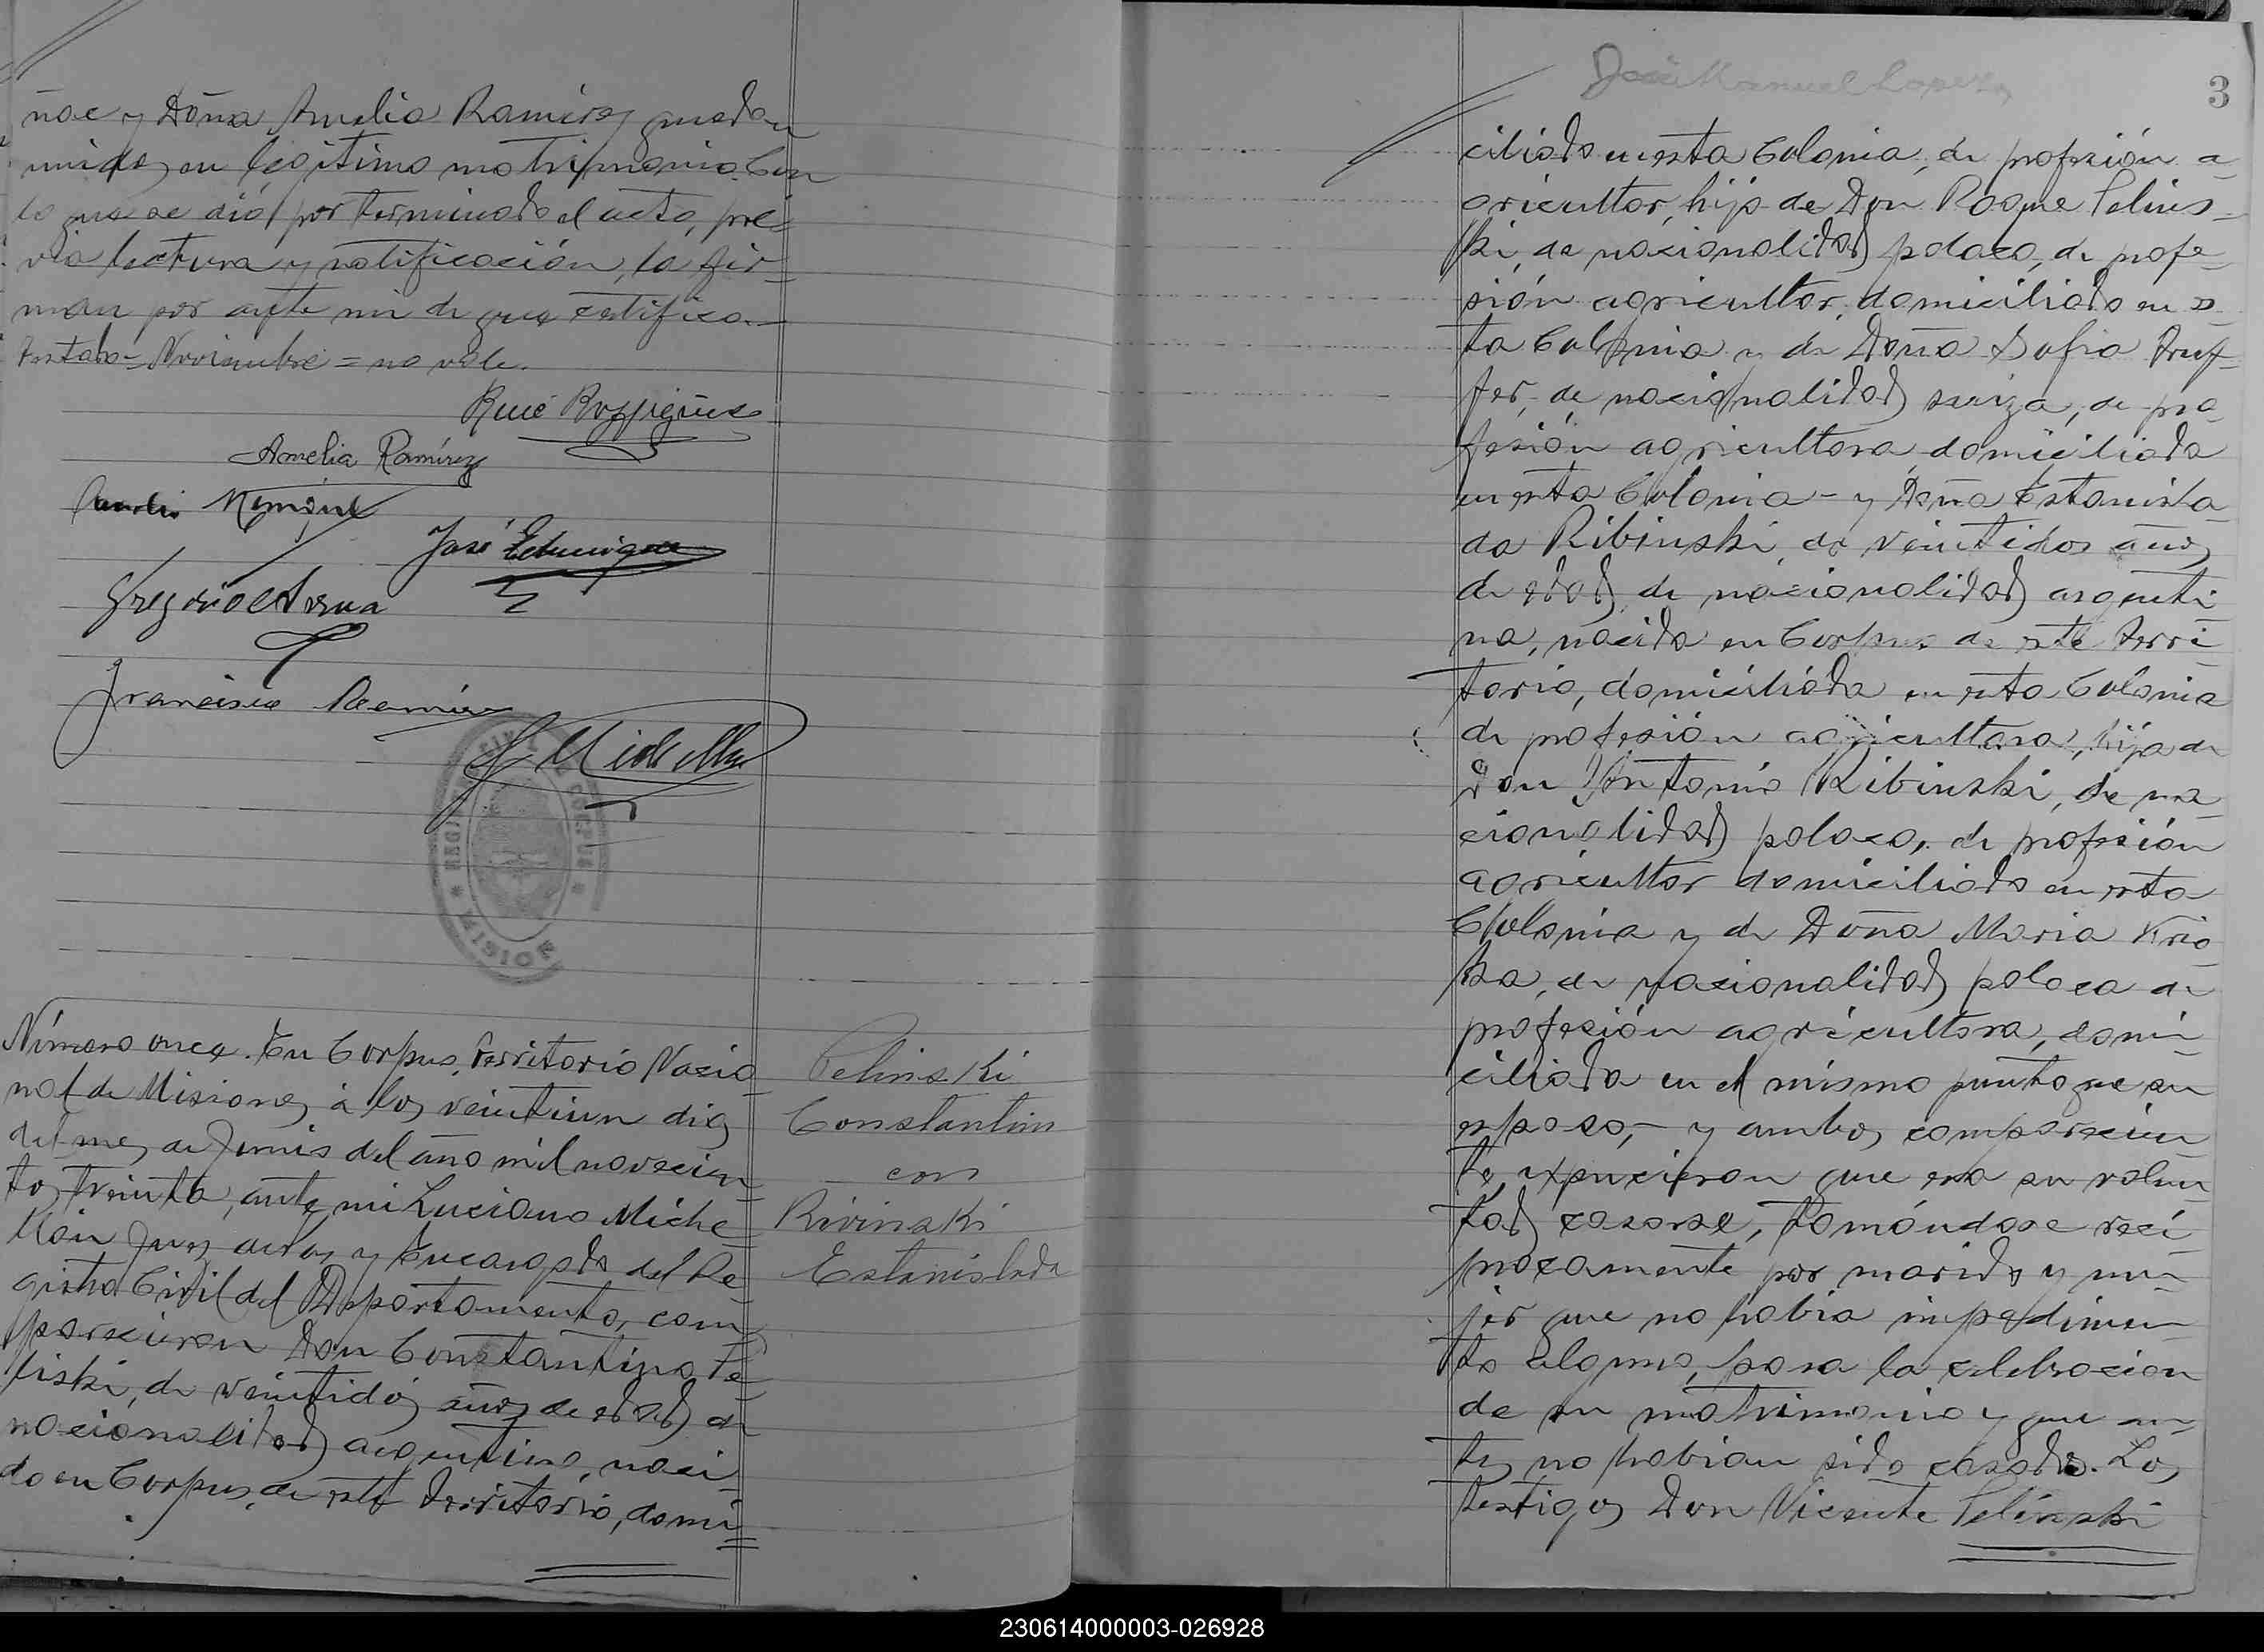 y Doña Amelia Ramirez quedan
unidos en legítimo matrimonio. Con
lo que se dió por terminado el acto, pré-
via lectura y ratificación, la fir-
man por ante mi de que certifico.—
Testado = Noviembre = no vale.
René
Amelia Ramírez
José
Francisco Ramírez
REGISTRO CIVIL CORPUS
MISIONES
Número once. En Corpus, Territorio Nacio-
nal de Misiones, á los veintiun dias
del mes de Junio del año mil novecien-
tos treinta, ante mi Luciano Miche-
Juez de Paz y Encargado del Re-
gistro Civil del Departamento, com-
parecieron Don Constantino Pe-
liski, de veintidós años de edad, de
nacionalidad argentino, naci-
do en Corpus, de este Territorio, domi-
Pelinski
Constantino
con
Rivinski
Estanislada
José Manuel Lopez
3
ciliado en esta Colonia, de profesión a-
gricultor, hijo de Don Roque Pelins-
ki, de nacionalidad polaco, de profe-
sión agricultor, domiciliado en es-
ta Colonia y de Doña Sofia
de nacionalidad suiza, de pro-
fesión agricultora, domiciliada
en esta Colonia - y Doña Estanisla-
da Ribinski, de veintidos años
de edad, de nacionalidad argenti-
na, nacida en Corpus de este Terri-
torio, domiciliada en esta Colonia
de profesión agricultora, hija de
Don Antonio Ribinski, de na-
cionalidad polaco, de profesión
agricultor domiciliado en esta
Colonia y de Doña Maria
de nacionalidad polaca de
profesión agricultora, domi-
ciliada en el mismo punto que su
esposo,- y ambos compareciен-
tes expusieron que era su volun-
tad casarse, tomándose recí-
procamente por marido y mu-
jer que no habia impedimen-
to alguno, para la celebracion
de su matrimonio y que an-
tes no habian sido casados. Los
testigos Don Vicente Pelinski
230614000003-026928